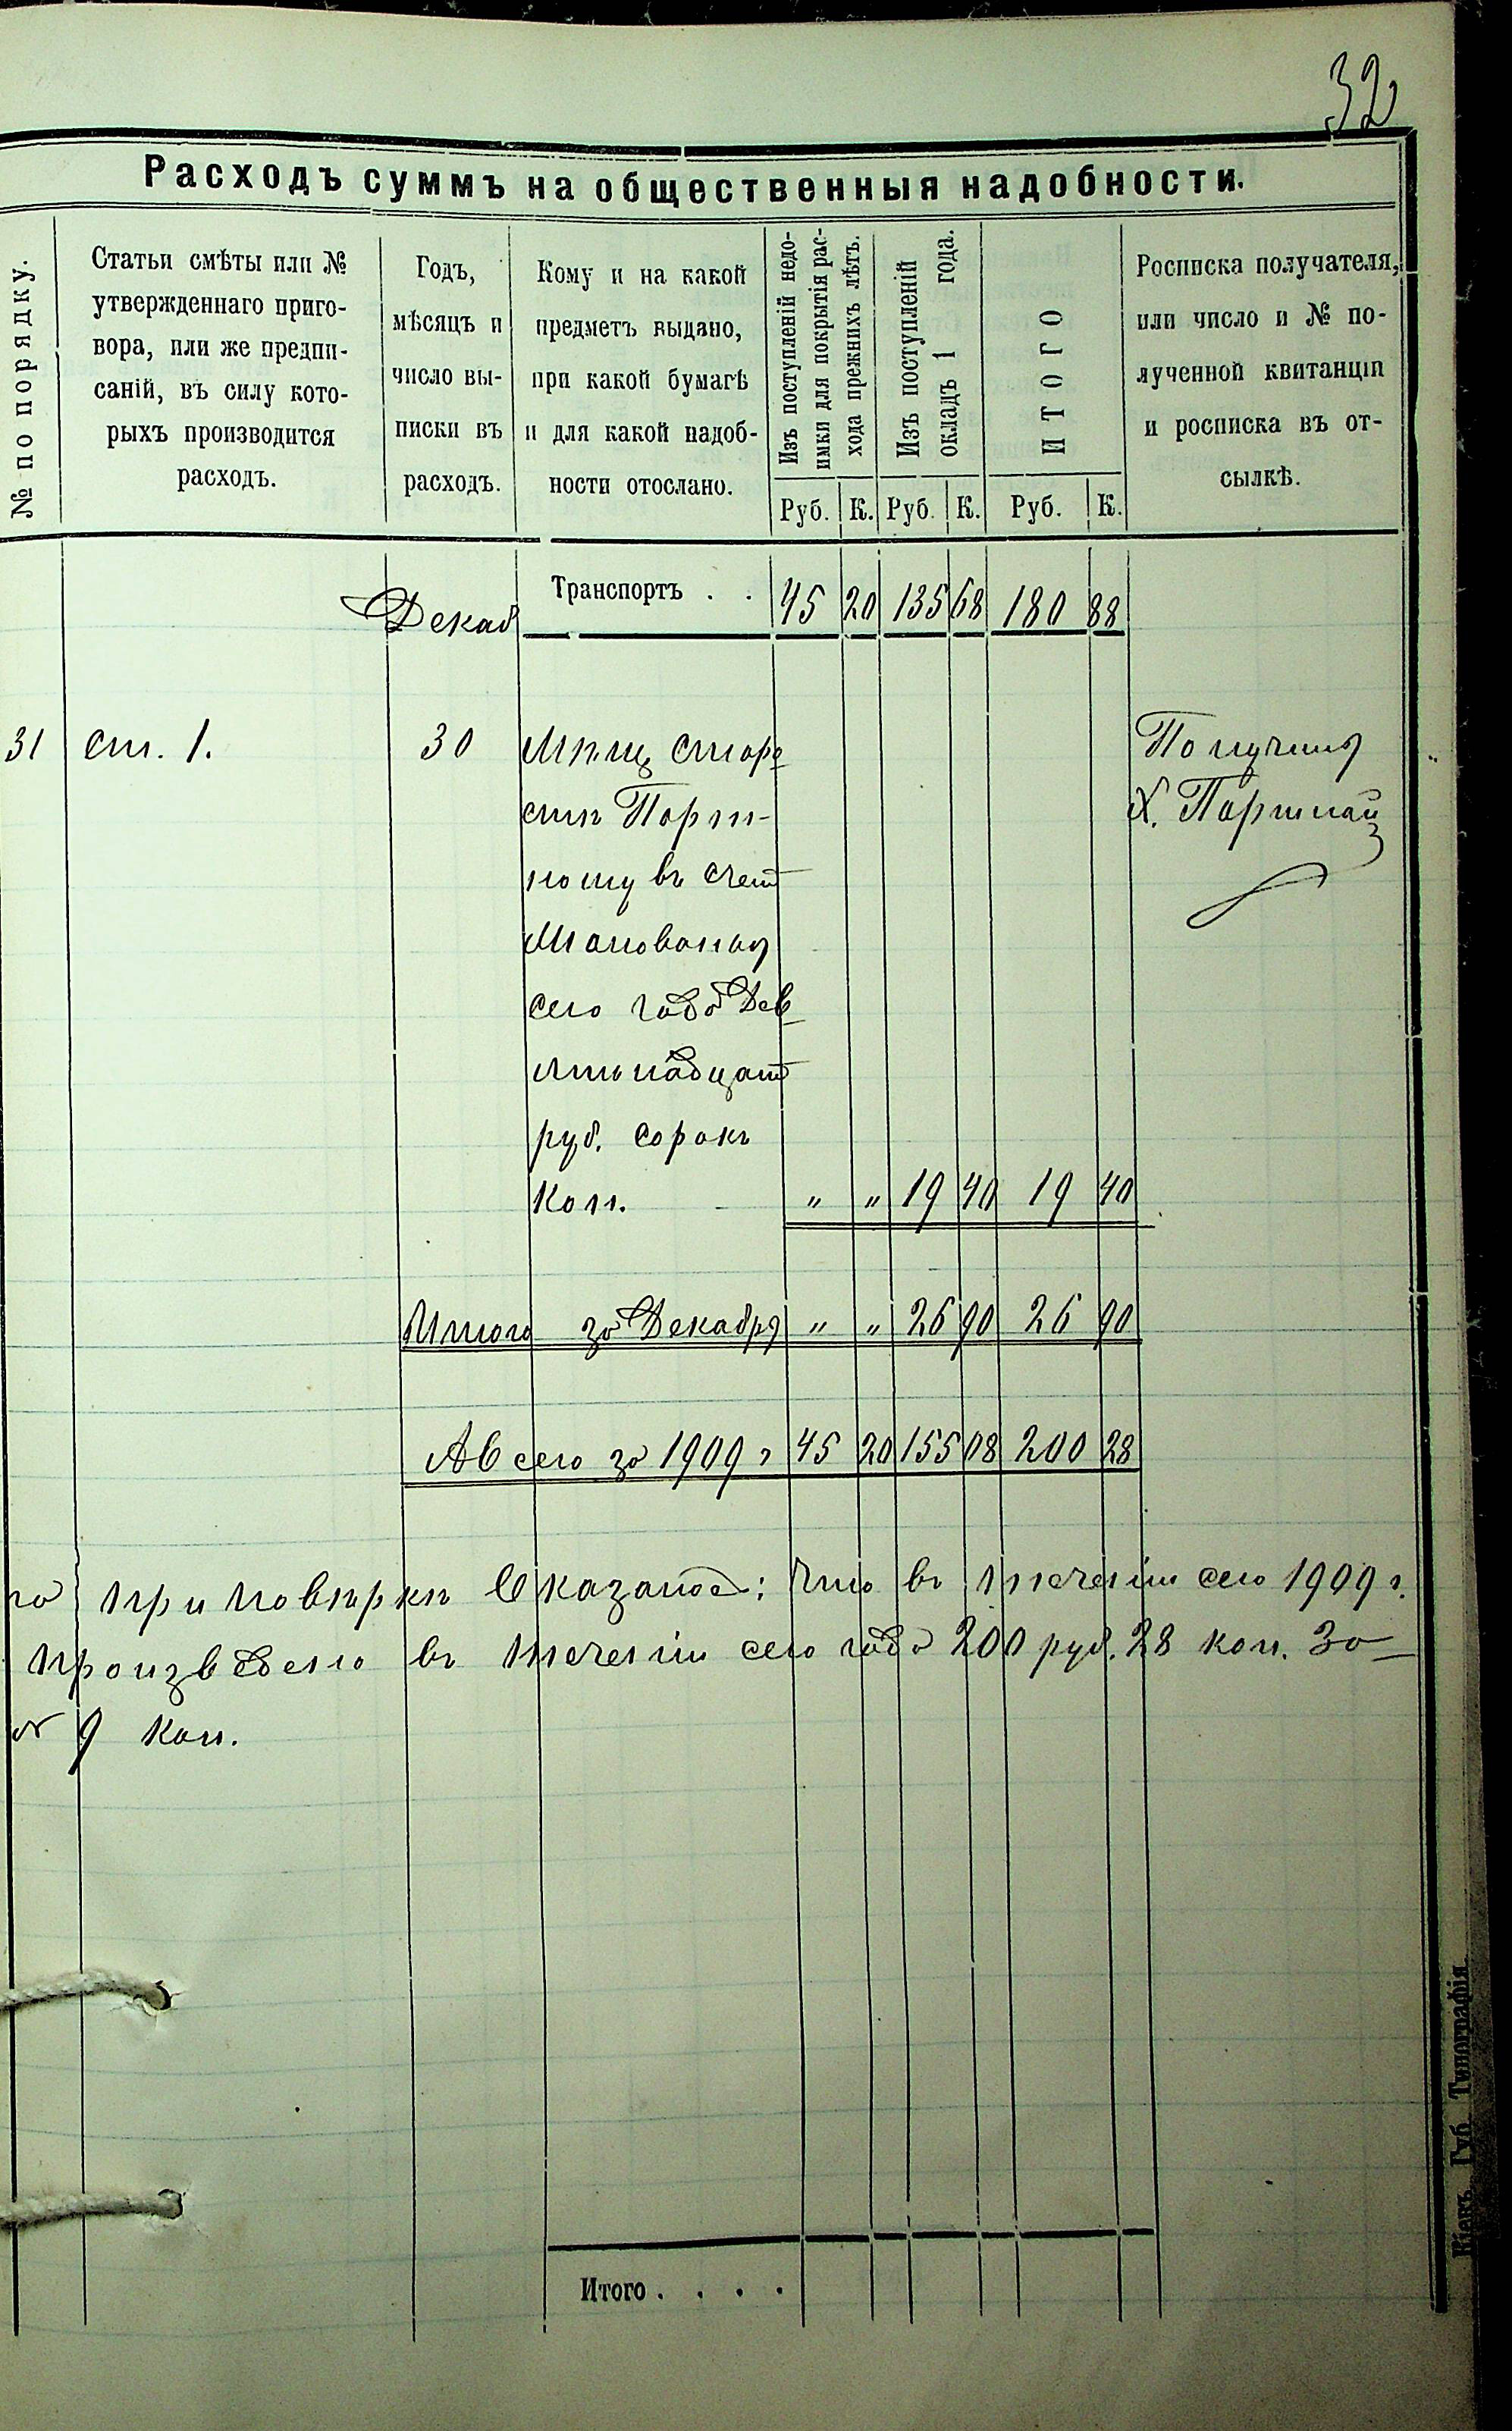 32
Расходъ суммъ на общественныя надобности.
№ по порядку.
Статьи смѣты или №
утвержденнаго приго-
вора, или же предпи-
саній, въ силу кото-
рыхъ производится
расходъ.
Годъ,
мѣсяцъ и
число вы-
писки въ
расходъ.
Кому и на какой
предметъ выдано,
при какой бумагѣ
и для какой надоб-
ности отослано.
Изъ поступленій недо-
имки для покрытія рас-
хода прежнихъ лѣтъ.
Изъ поступленій
окладъ 1 года.
ИТОГО
Росписка получателя,
или число и № по-
лученной квитанціи
и росписка въ от-
сылкѣ.
Руб. К. Руб. К. Руб. К.
Декаб Транспортъ . . 45 20 135 68 180 88
31 ст. 1. 30 Мѣщ старо Получилъ
стѣ Порт- Х. Портной
ному въ счет
жалованья
сего года Дев
ятнадцат
руб. сорокъ
коп. " " 19 40 19 40
Итого за Декабрь " " 26 90 26 90
А всего за 1909 г 45 20 155 08 200 28
при повѣркѣ Оказалось; что въ теченіи сего 1909 г.
произведено въ теченіи сего года 200 руб. 28 коп. За
9 коп.
Итого . . . .
Кіевъ. Губ. Типографія.